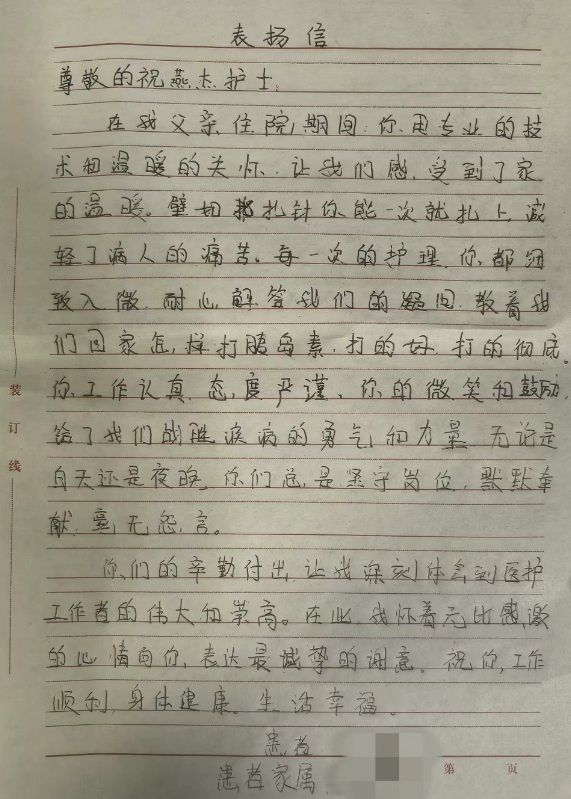 表扬信
尊敬的祝燕杰护士:
在我父亲住院期间,你用专业的技
术和温暖的关怀,让我们感受到了家
的温暖。扎针你能一次就扎上,减
轻了病人的痛苦。每一次的护理,你都细
致入微,耐心解答我们的疑问,教着我
们回家怎样打胰岛素,打的好,打的彻底。
你工作认真,态度严谨,你的微笑和鼓励,
给了我们战胜疾病的勇气和力量,无论是
白天还是夜晚,你们总是坚守岗位,默默奉
献,毫无怨言。
你们的辛勤付出,让我深刻体会到医护
工作者的伟大和崇高。在此,我怀着无比感激
的心情向你,表达最诚挚的谢意。祝你,工作
顺利,身体健康。生活幸福。
患者
患者家属
第 页
装
订
线